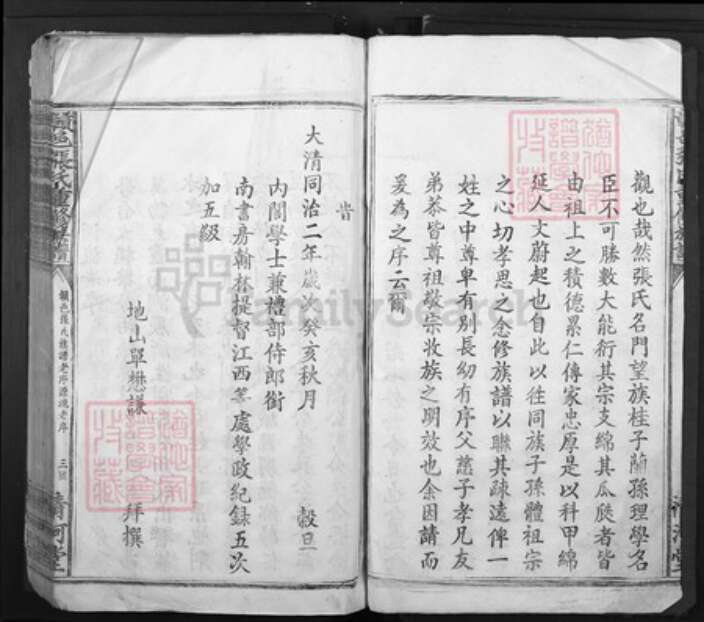 觀也哉然張氏名門望族桂子蘭孫理學名
臣不可勝數大能衍其宗支綿其瓜瓞者皆
由祖上之積德累仁傳家忠厚是以科甲綿
延人文蔚起也自此以往同族子孫體祖宗
之心切孝思之念修族譜以聯其疎遠俾一
姓之中尊卑有別長幼有序父慈子孝兄友
弟恭皆尊祖敬宗收族之明效也余因請而
爰為之序云爾
旹
大清同治二年歲次癸亥秋月 穀旦
內閣學士兼禮部侍郎銜
南書房翰林提督江西等處學政紀錄五次
加五級
地山單懋謙 拜撰
張氏重修族譜
老序源流老序
三號
清河堂
FamilySearch